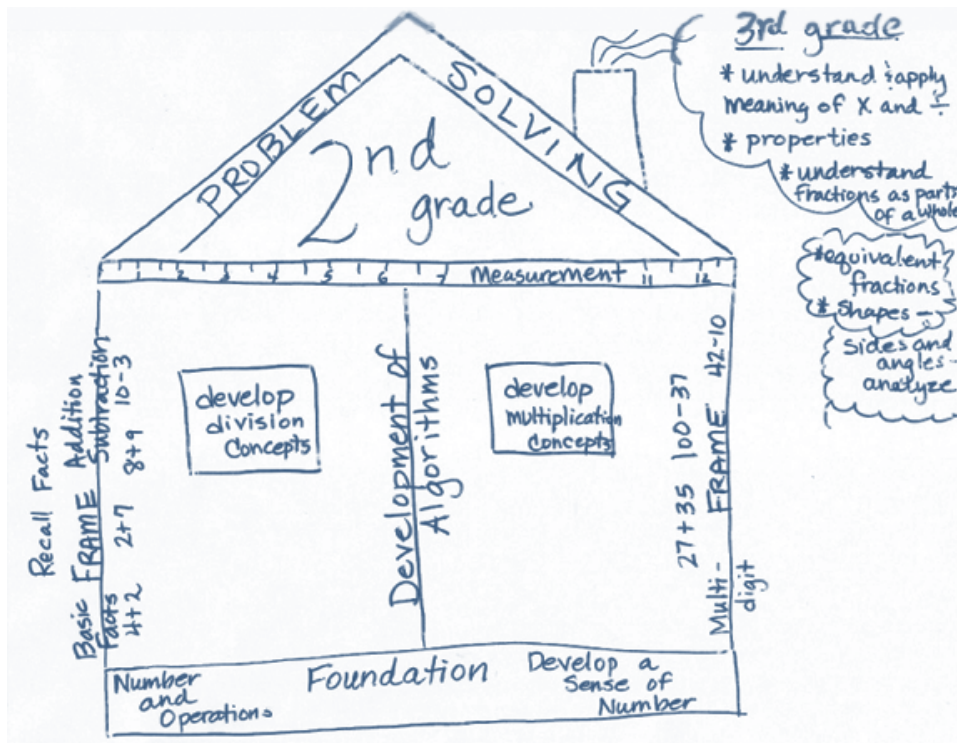 PROBLEM SOLVING
2nd
grade
3rd grade
* understand & apply
meaning of X and ÷
* properties
* understand
fractions as parts
of a whole
* equivalent
fractions
* Shapes -
Sides and
angles -
analyze
1 2 3 4 5 6 7 Measurement 11 12
Recall Facts
Basic FRAME Addition
Facts Subtraction
4+2 2+7 8+9 10-3
develop
division
Concepts
Development of
Algorithms
develop
multiplication
concepts
27+35 100-37
Multi- FRAME 42-10
digit
Number
and
Operations
Foundation
Develop a
Sense of
Number